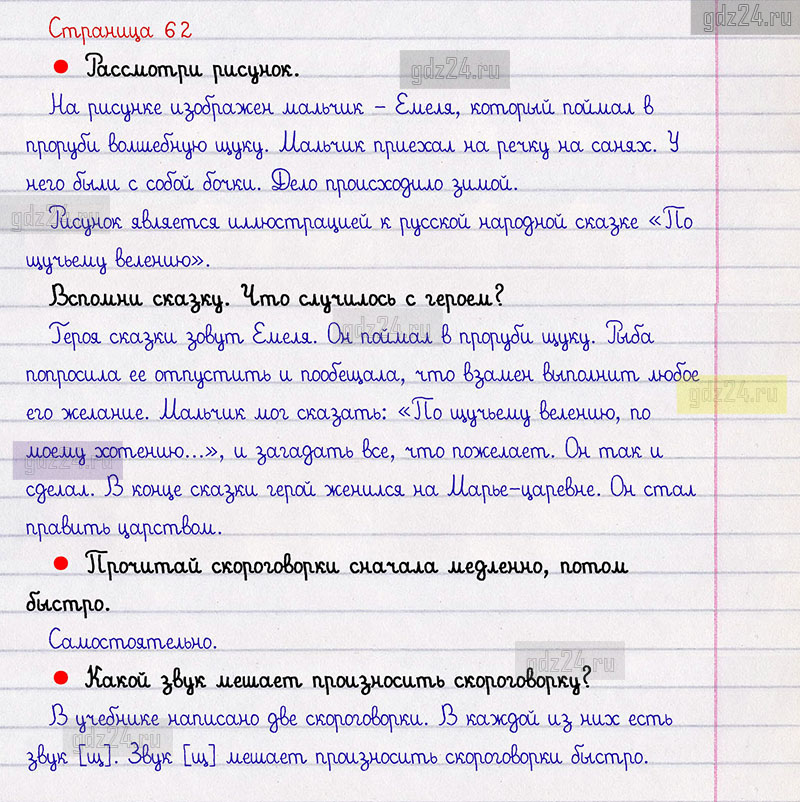 gdz24.ru
Страница 62
● Рассмотри рисунок.
gdz24.ru
На рисунке изображен мальчик – Емеля, который поймал в
проруби волшебную щуку. Мальчик приехал на речку на санях. У
него были с собой бочки. Дело происходило зимой.
gdz24.ru
Рисунок является иллюстрацией к русской народной сказке «По
щучьему велению».
Вспомни сказку. Что случилось с героем?
gdz24.ru
Героя сказки зовут Емеля. Он поймал в проруби щуку. Рыба
попросила ее отпустить и пообещала, что взамен выполнит любое
gdz24.ru
его желание. Мальчик мог сказать: «По щучьему велению, по
моему хотению...», и загадать все, что пожелает. Он так и
gdz24.ru
сделал. В конце сказки герой женился на Марье-царевне. Он стал
править царством.
● Прочитай скороговорки сначала медленно, потом
быстро.
Самостоятельно.
gdz24.ru
● Какой звук мешает произносить скороговорку?
В учебнике написано две скороговорки. В каждой из них есть
gdz24.ru
звук [щ]. Звук [щ] мешает произносить скороговорки быстро.